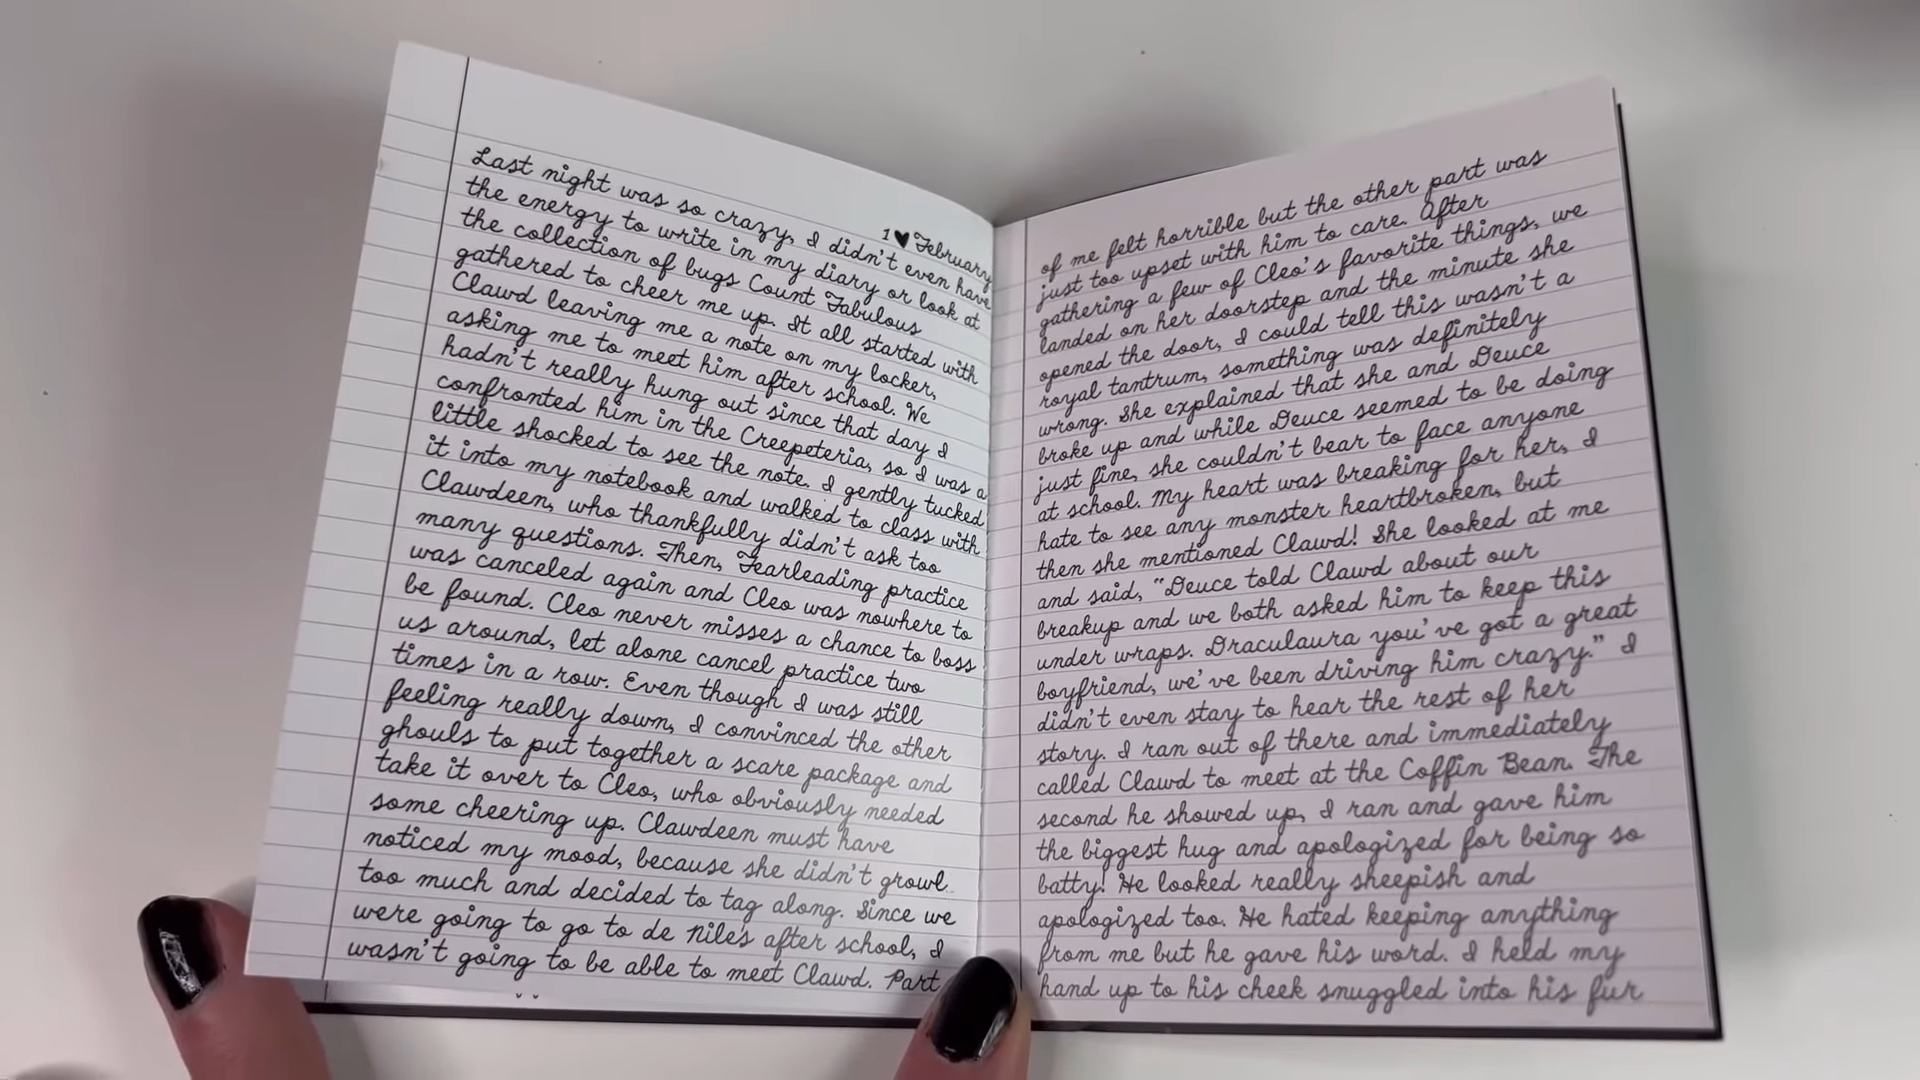 1 ♥ February
Last night was so crazy, I didn't even have
the energy to write in my diary or look at
the collection of bugs Count Fabulous
gathered to cheer me up. It all started with
Clawd leaving me a note on my locker,
asking me to meet him after school. We
hadn't really hung out since that day I
confronted him in the Creepeteria, so I was a
little shocked to see the note. I gently tucked
it into my notebook and walked to class with
Clawdeen, who thankfully didn't ask too
many questions. Then, Fearleading practice
was canceled again and Cleo was nowhere to
be found. Cleo never misses a chance to boss
us around, let alone cancel practice two
times in a row. Even though I was still
feeling really down, I convinced the other
ghouls to put together a scare package and
take it over to Cleo, who obviously needed
some cheering up. Clawdeen must have
noticed my mood, because she didn't growl
too much and decided to tag along. Since we
were going to go to de Nile's after school, I
wasn't going to be able to meet Clawd. Part
of me felt horrible but the other part was
just too upset with him to care. After
gathering a few of Cleo's favorite things, we
landed on her doorstep and the minute she
opened the door, I could tell this wasn't a
royal tantrum, something was definitely
wrong. She explained that she and Deuce
broke up and while Deuce seemed to be doing
just fine, she couldn't bear to face anyone
at school. My heart was breaking for her, I
hate to see any monster heartbroken, but
then she mentioned Clawd! She looked at me
and said, "Deuce told Clawd about our
breakup and we both asked him to keep this
under wraps. Draculaura you've got a great
boyfriend, we've been driving him crazy." I
didn't even stay to hear the rest of her
story. I ran out of there and immediately
called Clawd to meet at the Coffin Bean. The
second he showed up, I ran and gave him
the biggest hug and apologized for being so
batty! He looked really sheepish and
apologized too. He hated keeping anything
from me but he gave his word. I held my
hand up to his cheek snuggled into his fur